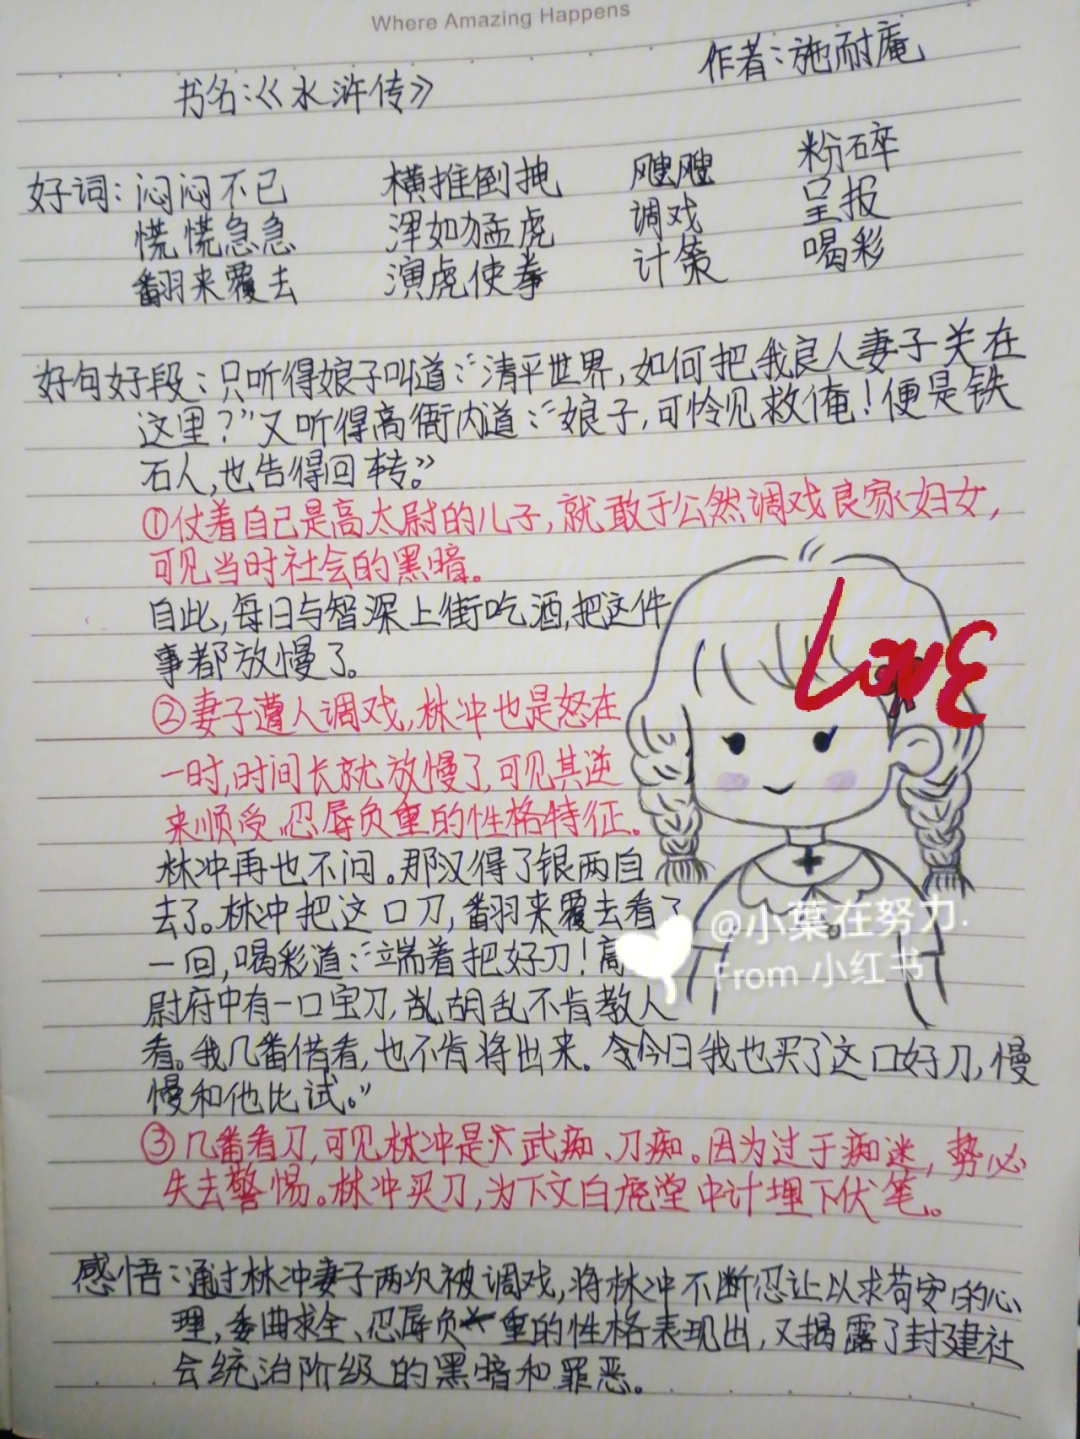 Where Amazing Happens
书名:《水浒传》 作者:施耐庵
好词:闷闷不已 横推倒拽 飕飕 粉碎
慌慌急急 浑如猛虎 调戏 呈报
翻来覆去 演虎使拳 计策 喝彩
好句好段:只听得娘子叫道:“清平世界,如何把我良人妻子关在
这里?”又听得高衙内道:“娘子,可怜见救俺!便是铁
石人,也告得回转。”
①仗着自己是高太尉的儿子,就敢于公然调戏良家妇女,
可见当时社会的黑暗。
自此,每日与智深上街吃酒,把这件
事都放慢了。
②妻子遭人调戏,林冲也是怒在
一时,时间长就放慢了,可见其逆
来顺受、忍辱负重的性格特征。
林冲再也不问。那汉得了银两自
去了。林冲把这口刀,翻来覆去看了
一回,喝彩道:“端着把好刀!高
尉府中有一口宝刀,胡乱不肯教人
看。我几番借看,也不肯将出来。今日我也买了这口好刀,慢
慢和他比试。”
③几番看刀,可见林冲是个武痴、刀痴。因为过于痴迷,势必
失去警惕。林冲买刀,为下文白虎堂中计埋下伏笔。
感悟:通过林冲妻子两次被调戏,将林冲不断忍让以求苟安的心
理,委曲求全、忍辱负重的性格表现出,又揭露了封建社
会统治阶级的黑暗和罪恶。
LOVE
@小葉在努力.
From 小红书